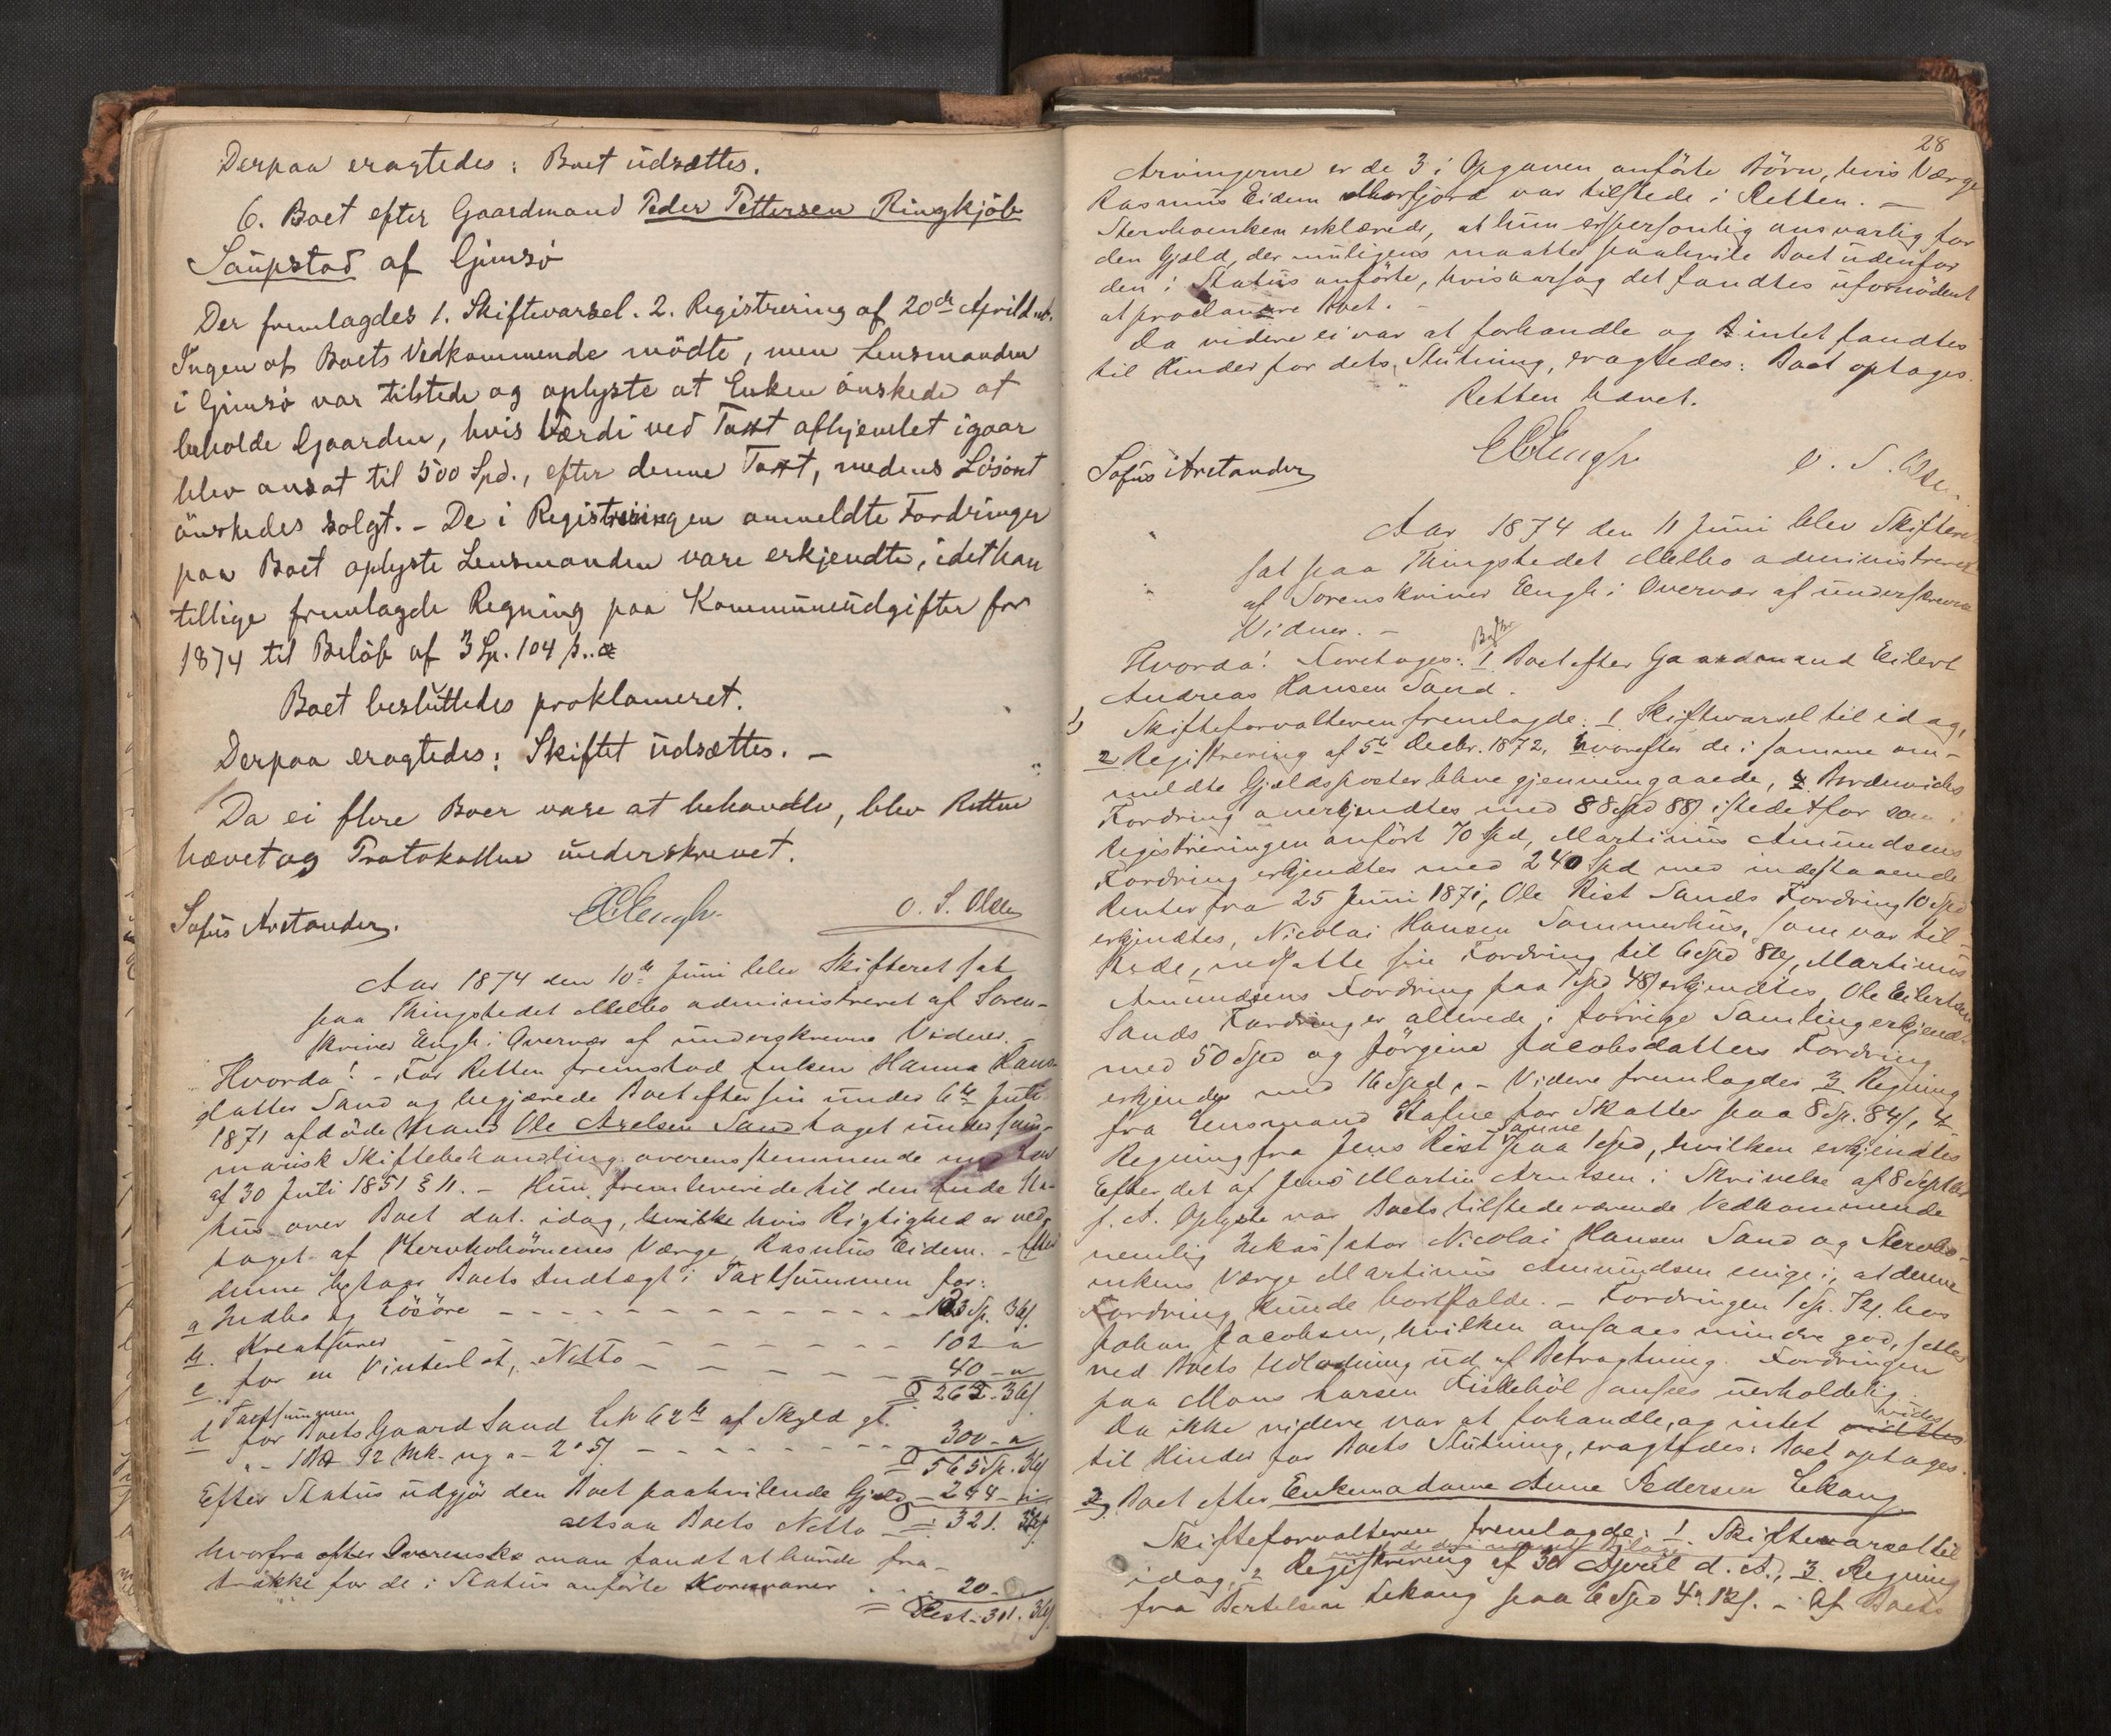 Derpaa eragtedes: Boet udsættes.
6. Boet efter Gaardmand Peder Pettersen Ringkjöb
Saupstad af Gimsö
Der fremlagdes 1. Skiftevarsel. 2. Registrering af 20de April d.
Ingen af Boets Vedkommende mödte, men Lensmanden
i Gimsö var tilstede og oplyste at Enken önskede at
beholde Gaarden, hvis Værdi ved Taxt afhjemlet igaar
blev ansat til 500 Spd., efter denne Taxt, medens Lösöret
önskedes solgt. - De i Registreringen anmeldte Fordringer
paa Boet oplyste Lensmanden vare erkjendte, idet han
tillige fremlagde Regning paa Kommuneudgifter for
1874 til Belöb af 3 Sp. 104 s.
Boet besluttedes proklameret.
Derpaa eragtedes: Skiftet udsættes. -
Da ei flere Boer vare at behandle, blev Retten
hævet og Protokollen underskrevet.
Sofus Arctander. EEengh. O. S. Olsen
Aar 1874 den 10de Juni blev Skifteret sat
paa Thingstedet Melbo administreret af Soren-
skriver Engh i Overvær af underskrevne Vidner.
Hvorda! - For Retten fremstod Enken Hanna Hans
datter Sand og begjærede Boet efter sin under 6te Juli
1871 afdöde Mand Ole Axelsen Sand taget under sum-
marisk Skiftebehandling overensstemmende med Lov
af 30 Juli 1851 § 11. - Hun fremleverede til den Ende Sta-
tus over Boet dat. idag, hvilke hvis Rigtighed er ved-
taget af Stervbobörnenes Værge Rasmus Eidem. - Efter
denne bestaar Boets Indtægt i Taxtsummen for:
a Indbo og Lösöre - - - 123 Sp. 36 s.
b. Kreaturer - - - 102 - "
c. for en Vinterbåt, Netto - - - 40 - "
265 - 36 s
Taxtsummen
d for Boets Gaard Sand L. No 62 b af Skyld gl.
" - 12 Mk. ny " - 2 . 5 s. - - - 300 - "
565 Sp. 36 s
Efter Status udgjör den Boet paahvilende Gjæld - 244 - "
altsaa Boets Netto = 321. 36 s
hvorfra efter Overenskomst man fandt at burde fra-
trække for de i Status anförte 20 -
= Rest - 301. 36 s.
28
Arvingerne er de 3 i Opgaven anförte Börn, hvis Værge
Rasmus Eidem Morfjord var tilstede i Retten. -
Stervboenken erklærede, at hun er personlig ansvarlig for
den Gjæld, der muligens maatte paahvile Boet udenfor
den i Status anförte, hvisaarsag det fandtes ufornödent
at proclamere Boet. -
Da videre ei var at forhandle og intet fandtes
til Hinder for dets Slutning, eragtedes: Boet optages.
Retten hævet.
Sofus Arctander EEengh. O. S. Olsen.
Aar 1874 den 11 Juni blev Skifteret
sat paa Thingstedet Melbo administreret
af Sorenskriver Eengh i Overvær af underskrevne
Vidner. -
Hvorda! Foretages: 1 Boet efter Gaardmand Eilert
Andreas Hansen Sand.
1) Skifteforvalteren fremlagde: 1 Skiftevarsel til idag,
2 Registrering af 5te Decbr. 1872, hvorefter de i samme an-
meldte Gjældsposter bleve gjennemgaaede, Bordewichs
Fordring anerkjendtes med 88 Spd 88 s istedetfor som i
Registreringen anfört 70 Spd, Martinus Amundsens
Fordring erkjendtes med 240 Spd med indestaaende
Renter fra 25 Juni 1871, Ole Rist Sands Fordring 10 Spd
erkjendtes, Nicolai Hansen Sommerhus, som var til-
stede, nedsatte sin Fordring til 6 Spd 80 s, Martinus
Amundsens Fordring paa 1 Spd 48 s erkjendtes, Ole Eilertsen
Sands Fordring er allerede i forrige Samling erkjendt
med 50 Spd og Jörgine Jacobsdatters Fordring
erkjendes med 16 Spd. - Videre fremlagdes 3 Regning
fra Lensmand Stafne for Skatter paa 8 Sp. 84 s, 4
Regning fra Jens Rist Sanne paa 1 Spd, hvilken erkjendtes
Efter det af Jens Martin Arntsen i Skrivelse af 8 Septbr
f. A. Oplyste var Boets tilstedeværende Vedkommende
nemlig Inkassator Nicolai Hansen Sand og Stervbo-
enkens Værge Martinus Amundsen enige i, at denne
Fordring kunde bortfalde. - Fordringen 1 Sp. 72 s. hos
Johan Jacobsen, hvilken ansaaes mindre god, sættes
ved Boets Udlodning ud af Betragtning. Fordringen
paa Mons Larsen Fiskeböl ansees uerholdelig.
Da ikke videre var at forhandle, og intet vides
til Hinder for Boets Slutning, eragtedes: Boet optages.
2) Boet efter Enkemadame Anne Pedersen Lekang
Skifteforvalteren fremlagde: 1. Skiftevarsel til
idag, 2 Registrering af 30 April d. A., 3. Regning
fra Bertelsen Lekang paa 6 Spd 4 " 12 s. - Af Boets